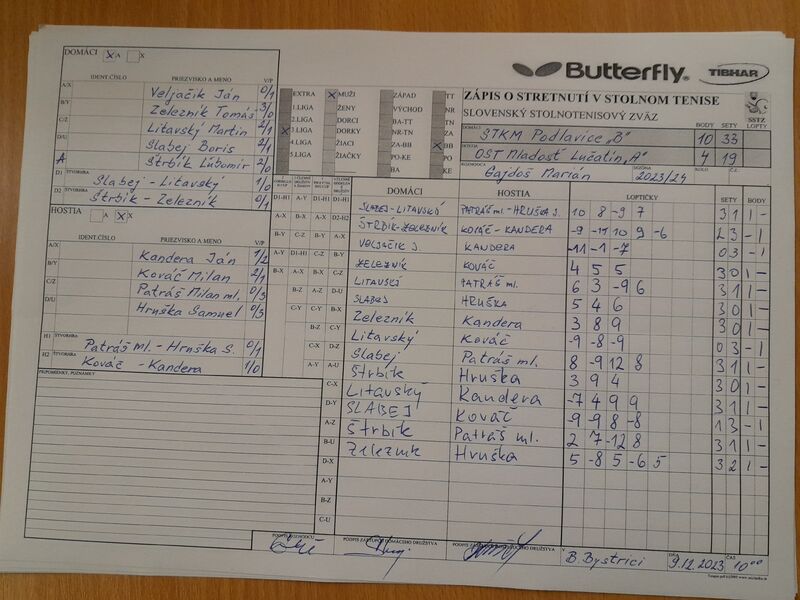 DOMÁCI X A X
IDENT.ČÍSLO PRIEZVISKO A MENO V/P
A/X Veljačik Ján 0/1
B/Y Železník Tomáš 3/0
C/Z Litavský Martin 2/1
D/U Slabej Boris 2/1
A Štrbík Ľubomír 2/0
D1 ŠTVORHRA Slabej - Litavský 1/0
D2 ŠTVORHRA Štrbík - Železník 0/1
HOSTIA A X X
IDENT.ČÍSLO PRIEZVISKO A MENO V/P
A/X Kandera Ján 1/2
B/Y Kováč Milan 2/1
C/Z Patráš Milan ml. 0/3
D/U Hruška Samuel 0/3
H1 ŠTVORHRA Patráš ml. - Hruška S. 0/1
H2 ŠTVORHRA Kováč - Kandera 1/0
PRIPOMIENKY, POZNÁMKY
EXTRA X MUŽI ZÁPAD TT
1.LIGA ŽENY VÝCHOD TN
2.LIGA MUŽI BA-TT NR
X 3.LIGA DORKY NR-TN ZA
4.LIGA ŽIACI ZA-BB X BB
5.LIGA ŽIAČKY PO-KE PO
BA KE
Butterfly TIBHAR
ZÁPIS O STRETNUTÍ V STOLNOM TENISE
SLOVENSKÝ STOLNOTENISOVÝ ZVÄZ SSTZ
BODY SETY LOPTY
DOMÁCI STKM Podlavice "B" 10 33
HOSTIA OŠT Mladosť Lučatín "A" 4 19
ROZHODCA Gajdoš Marián SEZÓNA 2023/24 KOLO Č.
DOMÁCI HOSTIA LOPTIČKY SETY BODY
SLABEJ-LITAVSKÝ PATRÁŠ ml-HRUŠKA S. 10 8 -9 7 3 1 1 -
ŠTRBÍK-ŽELEZNÍK KOVÁČ-KANDERA -9 -11 10 9 -6 2 3 - 1
VELJAČIK J. KANDERA -11 -1 -7 0 3 - 1
ŽELEZNÍK KOVÁČ 4 5 5 3 0 1 -
LITAVSKÝ PATRÁŠ ml. 6 3 -9 6 3 1 1 -
SLABEJ HRUŠKA 5 4 6 3 0 1 -
Železník Kandera 3 8 9 3 0 1 -
Litavský Kováč -9 -8 -9 0 3 - 1
Slabej Patráš ml. 8 -9 12 8 3 1 1 -
Štrbík Hruška 3 9 4 3 0 1 -
Litavský Kandera -7 4 9 9 3 1 1 -
SLABEJ Kováč -9 -9 8 -8 1 3 - 1
Štrbík Patráš ml. 2 7 -12 8 3 1 1 -
Železník Hruška 5 -8 5 -6 5 3 2 1 -
PODPIS ROZHODCU PODPIS ZÁSTUPCU DOMÁCEHO DRUŽSTVA PODPIS ZÁSTUPCU HOSŤUJÚCEHO DRUŽSTVA
V B. Bystrici DŇA 9.12.2023 ČAS 10 00